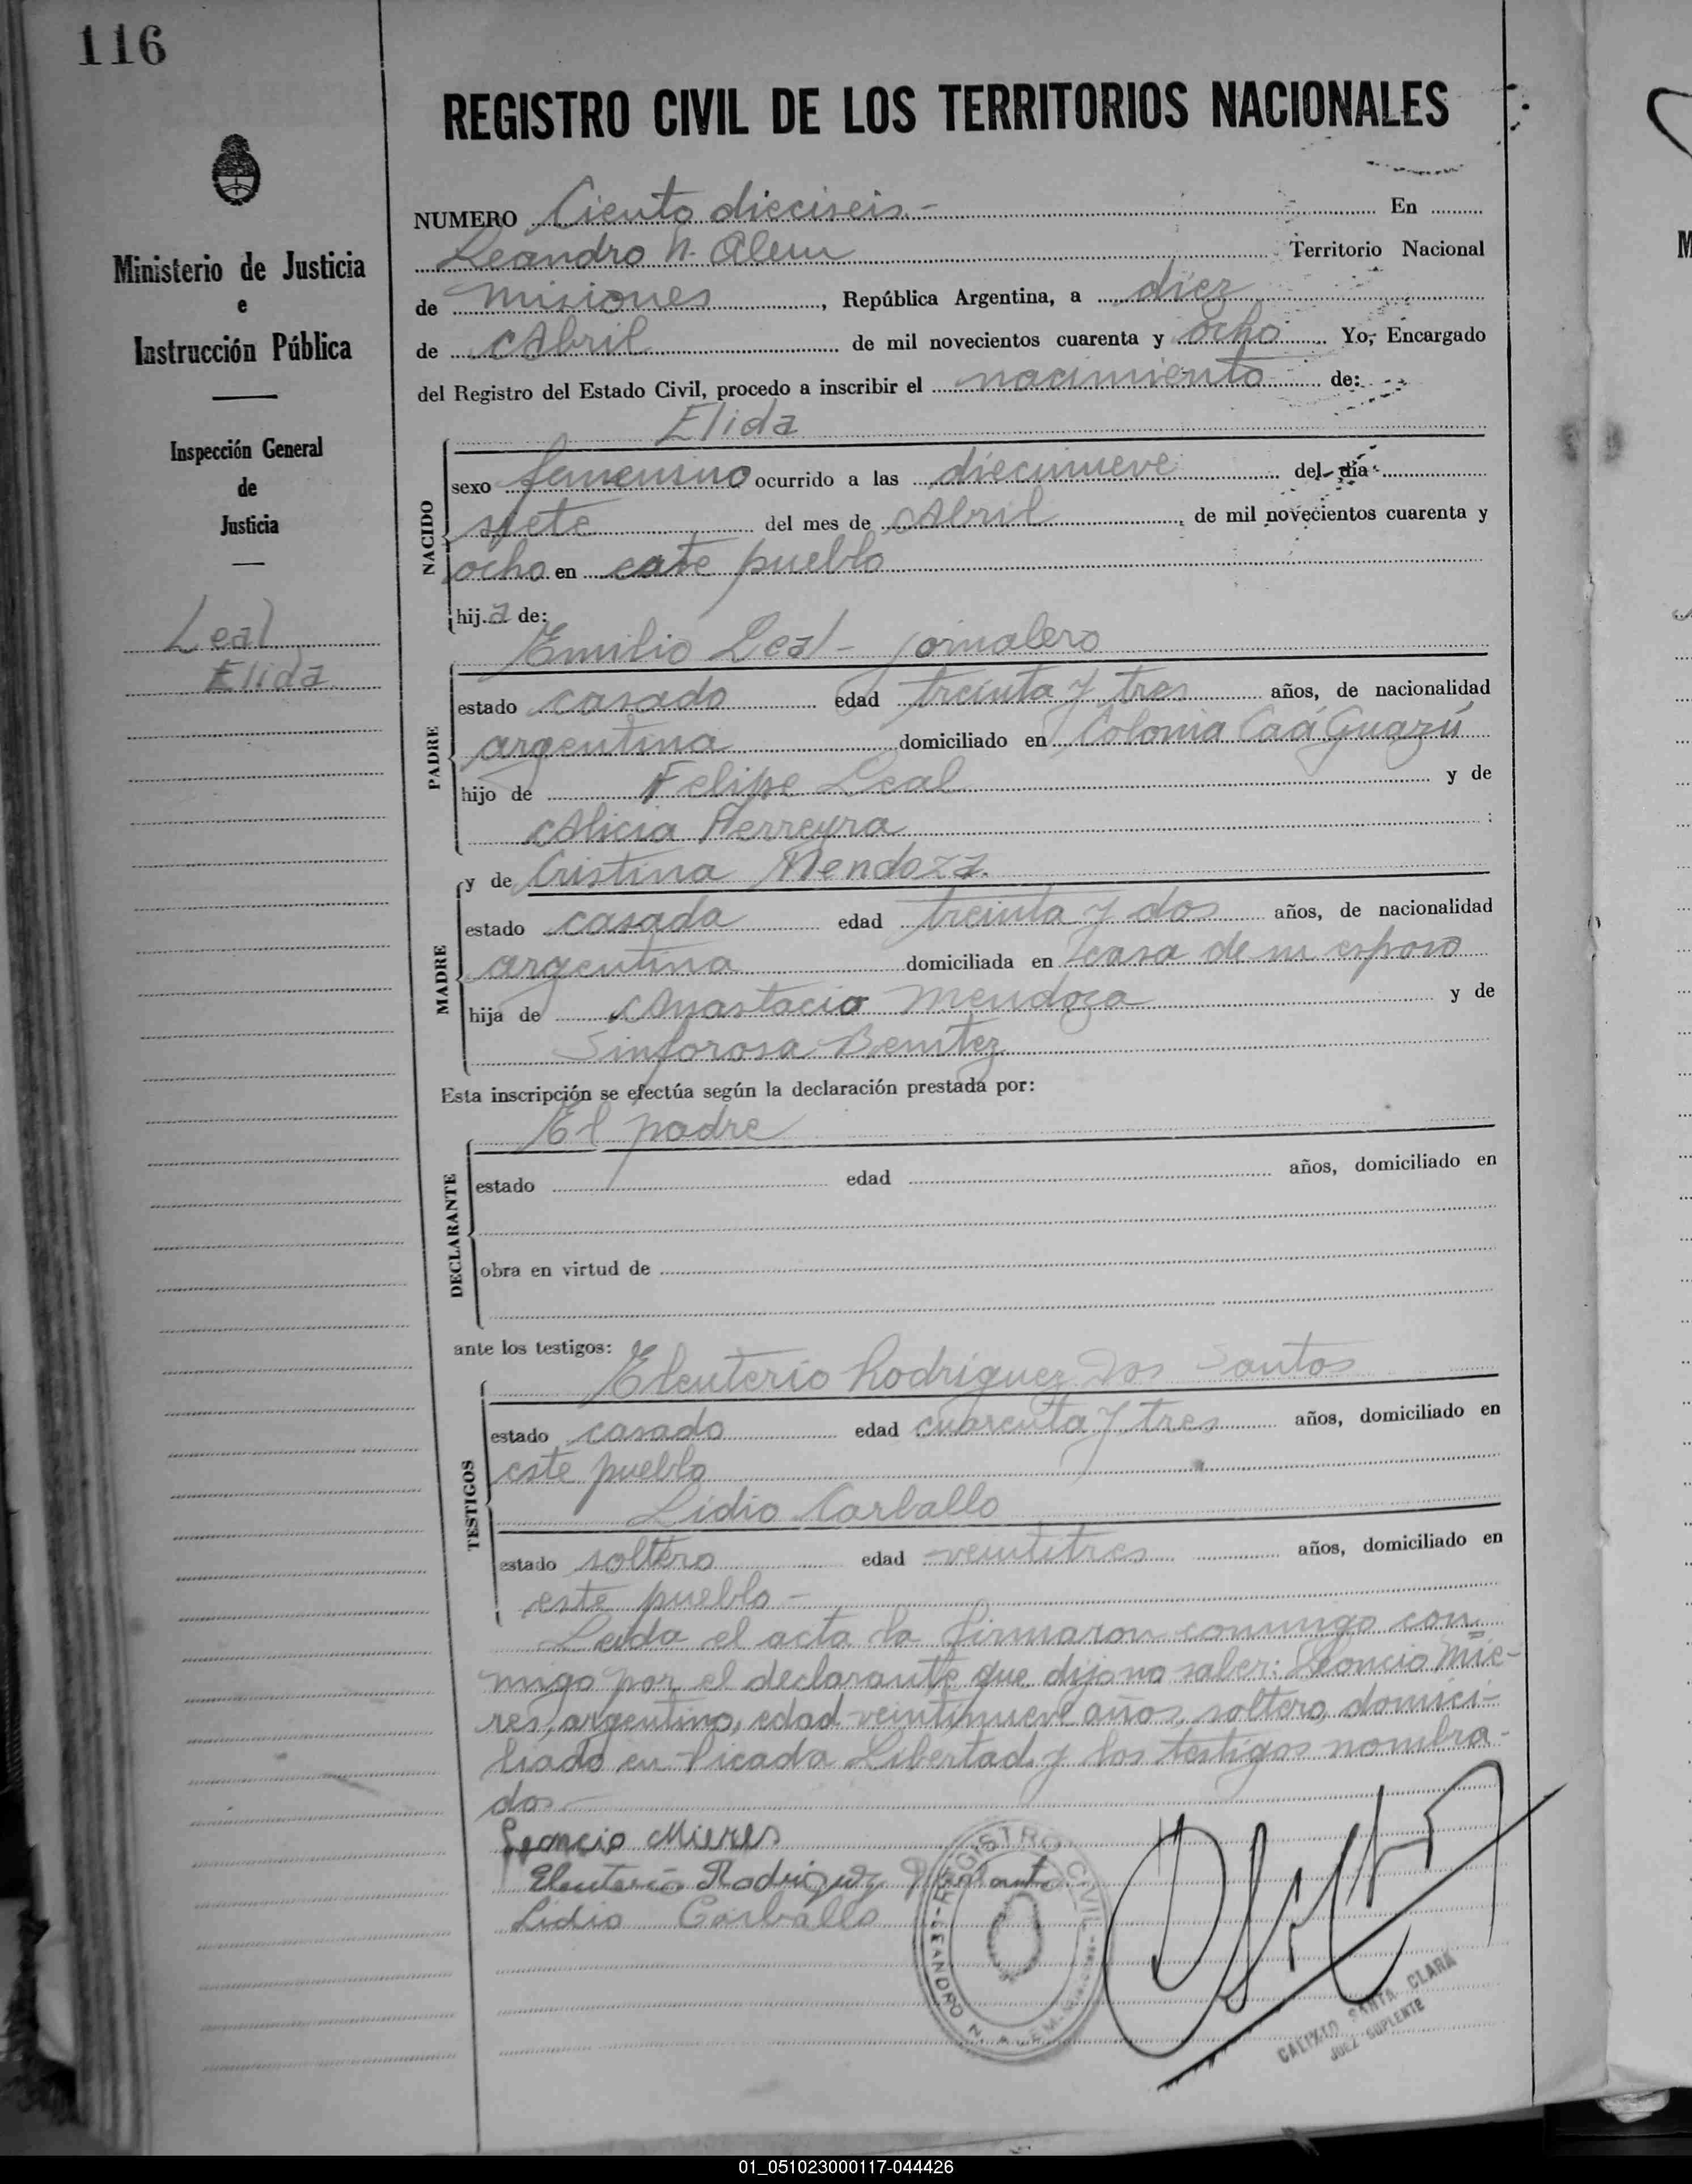 116
REGISTRO CIVIL DE LOS TERRITORIOS NACIONALES
Ministerio de Justicia
e
Instrucción Pública
Inspección General
de
Justicia
Leal
Elida
NUMERO Ciento dieciseis.- En
Leandro N. Alem Territorio Nacional
de Misiones, República Argentina, a diez
de Abril de mil novecientos cuarenta y ocho Yo, Encargado
del Registro del Estado Civil, procedo a inscribir el nacimiento de:
Elida
NACIDO
sexo femenino ocurrido a las diecinueve del día
siete del mes de Abril, de mil novecientos cuarenta y
ocho en este pueblo
hija de:
Emilio Leal - jornalero
PADRE
estado casado edad treinta y tres años, de nacionalidad
argentina domiciliado en Colonia Caá Guazú
hijo de Felipe Leal y de
Alicia Herreyra :
y de Cristina Mendoza.
MADRE
estado casada edad treinta y dos años, de nacionalidad
argentina domiciliada en casa de su esposo
hija de Anastacio Mendoza y de
Sinforosa Benitez
Esta inscripción se efectúa según la declaración prestada por:
El padre
DECLARANTE
estado edad años, domiciliado en
obra en virtud de
ante los testigos:
Eleuterio Rodriguez Dos Santos
TESTIGOS
estado casado edad cuarenta y tres años, domiciliado en
este pueblo
Lidio Carballo
estado soltero edad veintitres años, domiciliado en
este pueblo -
Leída el acta la firmaron conmigo con
migo por el declarante que dijo no saber: Leoncio Mie-
res, argentino, edad veintinueve años, soltero, domici-
liado en Picada Libertad y los testigos nombra-
dos -
Leoncio Mieres
Eleuterio Rodriguez
Lidio Carballo
REGISTRO CIVIL - LEANDRO N. ALEM
CALIXTO SANTA CLARA
JUEZ SUPLENTE
01_051023000117-044426